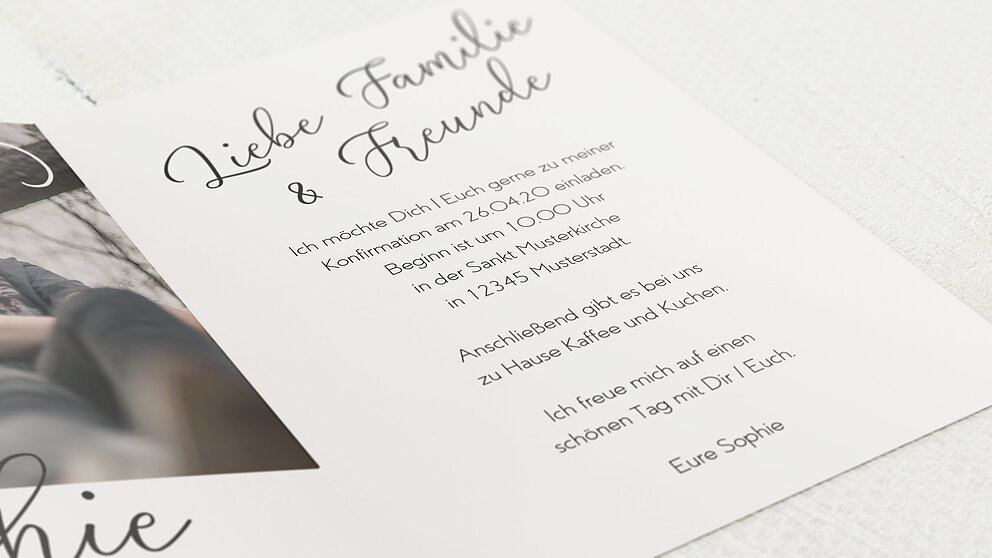 Liebe Familie
& Freunde
Ich möchte Dich | Euch gerne zu meiner
Konfirmation am 26.04.20 einladen.
Beginn ist um 10.00 Uhr
in der Sankt Musterkirche
in 12345 Musterstadt.
Anschließend gibt es bei uns
zu Hause Kaffee und Kuchen.
Ich freue mich auf einen
schönen Tag mit Dir | Euch.
Eure Sophie
hie